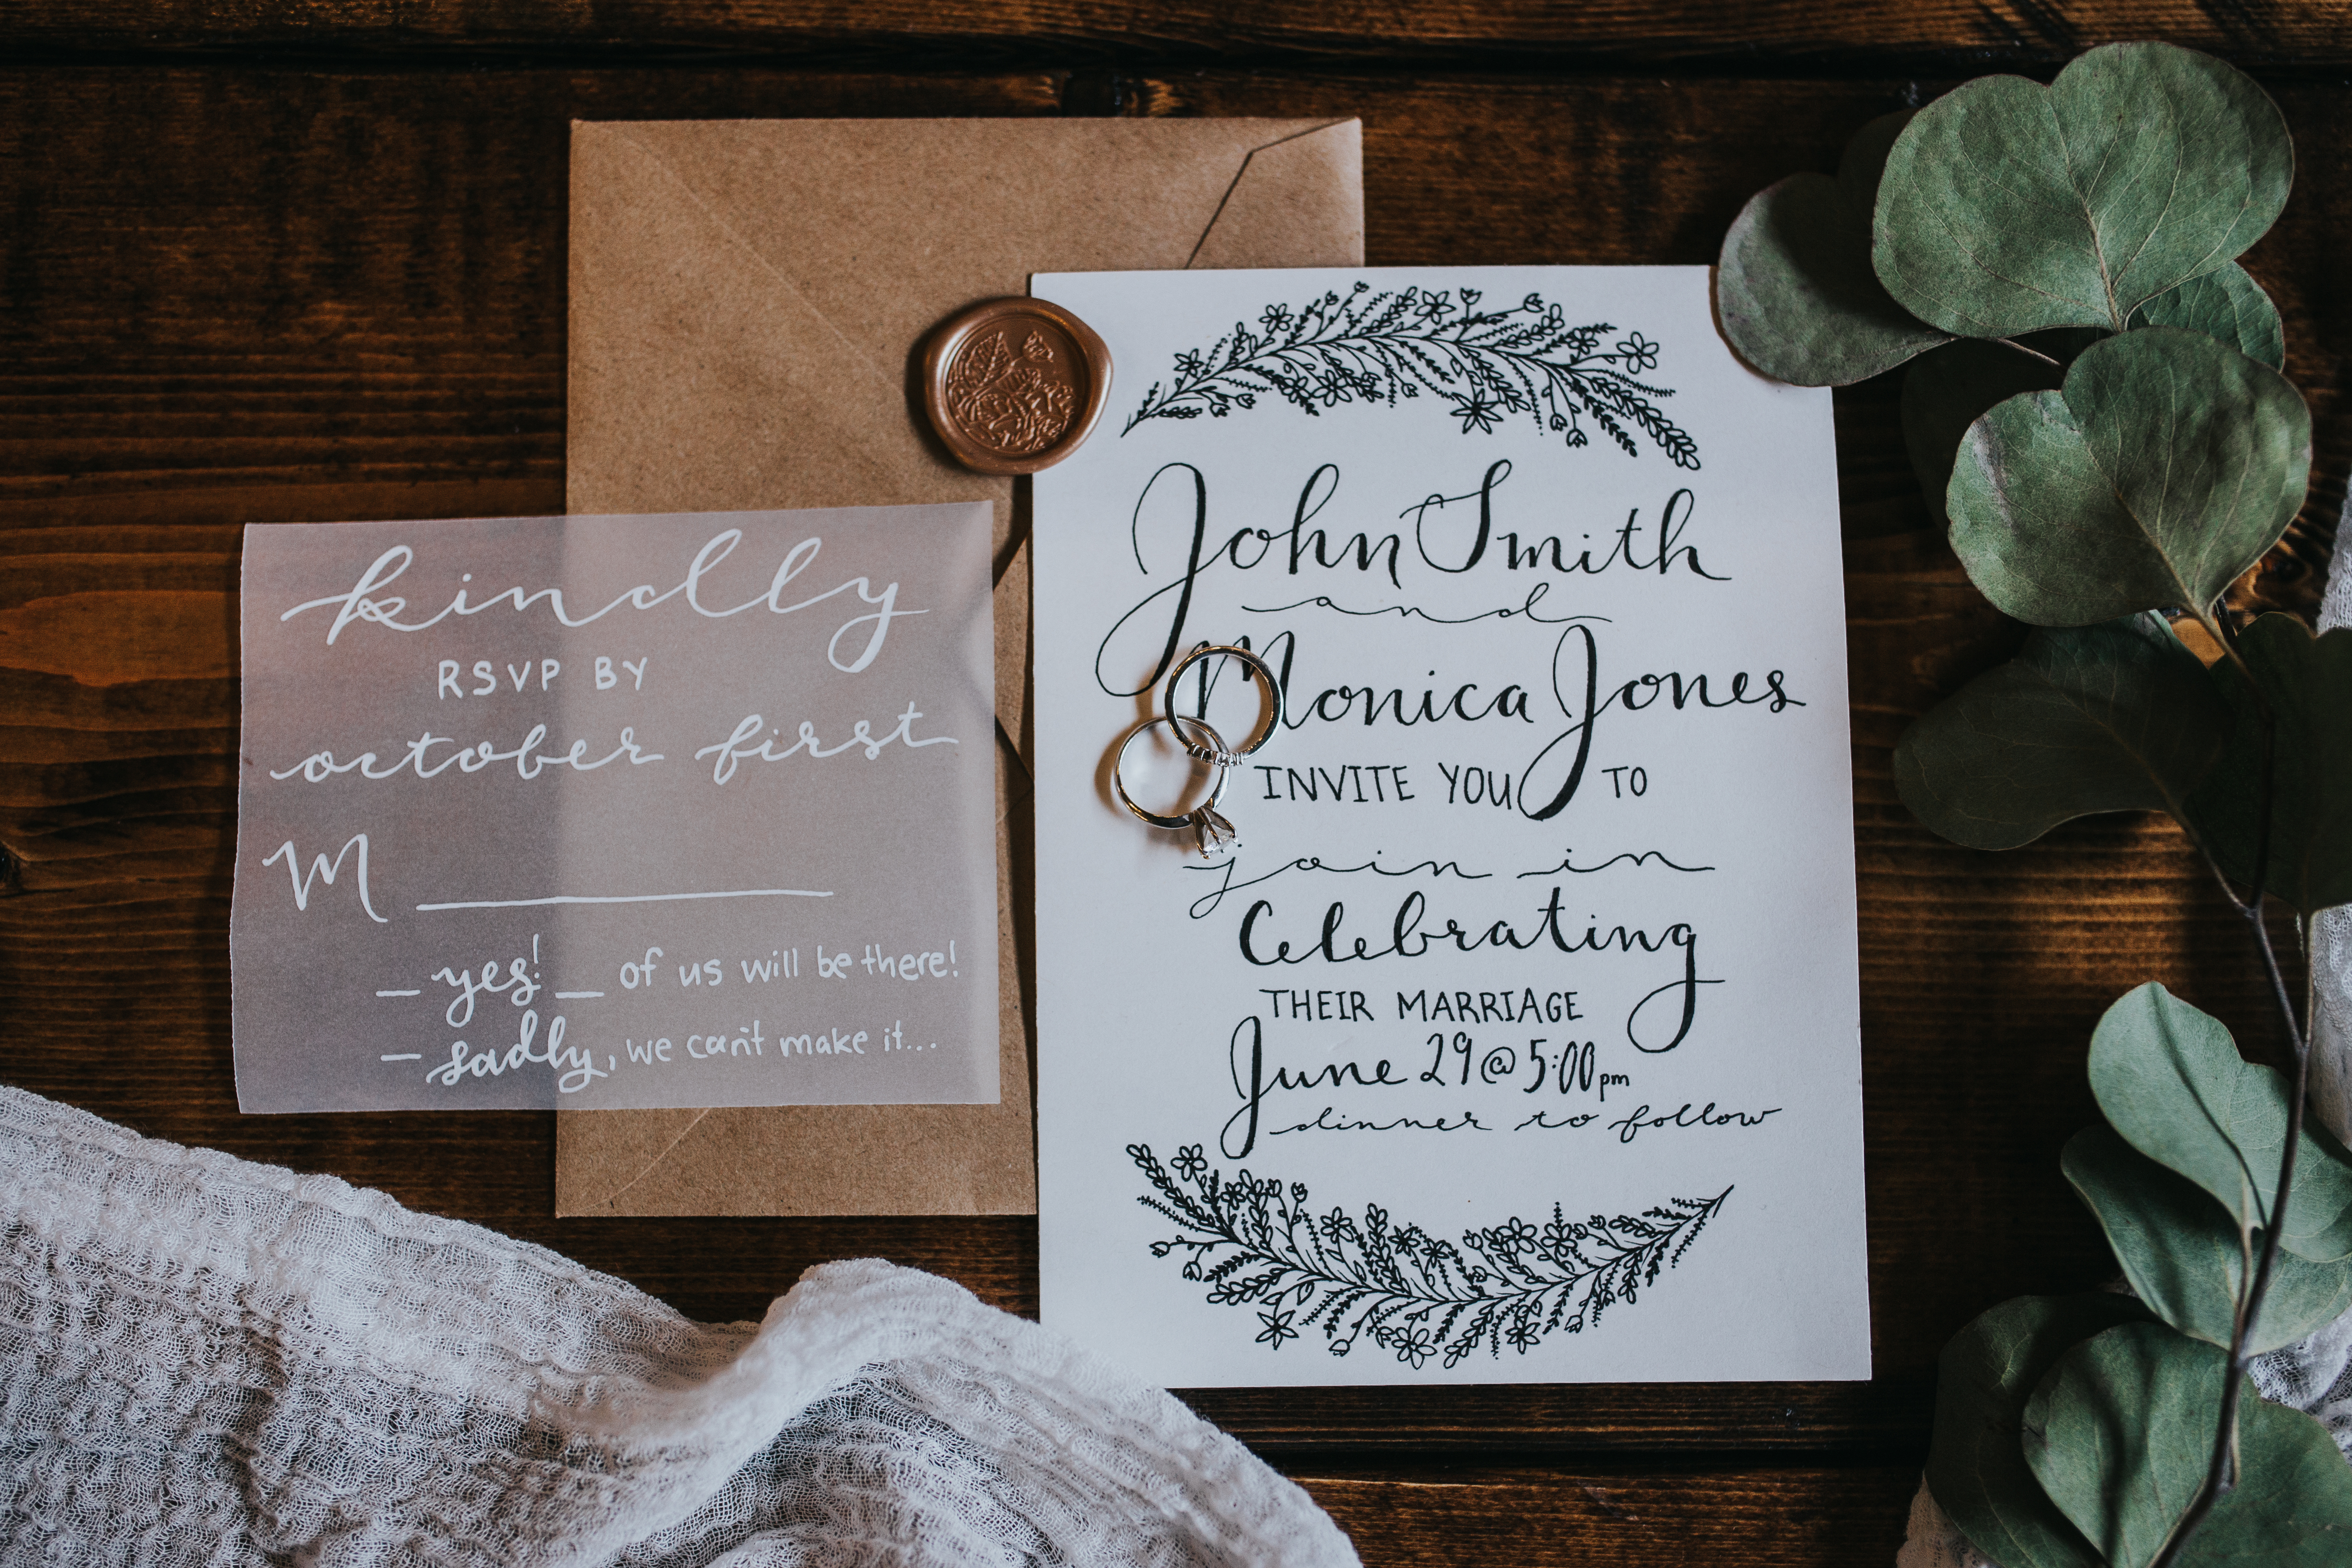 kindly
RSVP BY
october first
M
yes! of us will be there!
sadly, we can't make it...
John Smith
and
Monica Jones
INVITE YOU TO
join in
Celebrating
THEIR MARRIAGE
June 29 @ 5:00 pm
dinner to follow